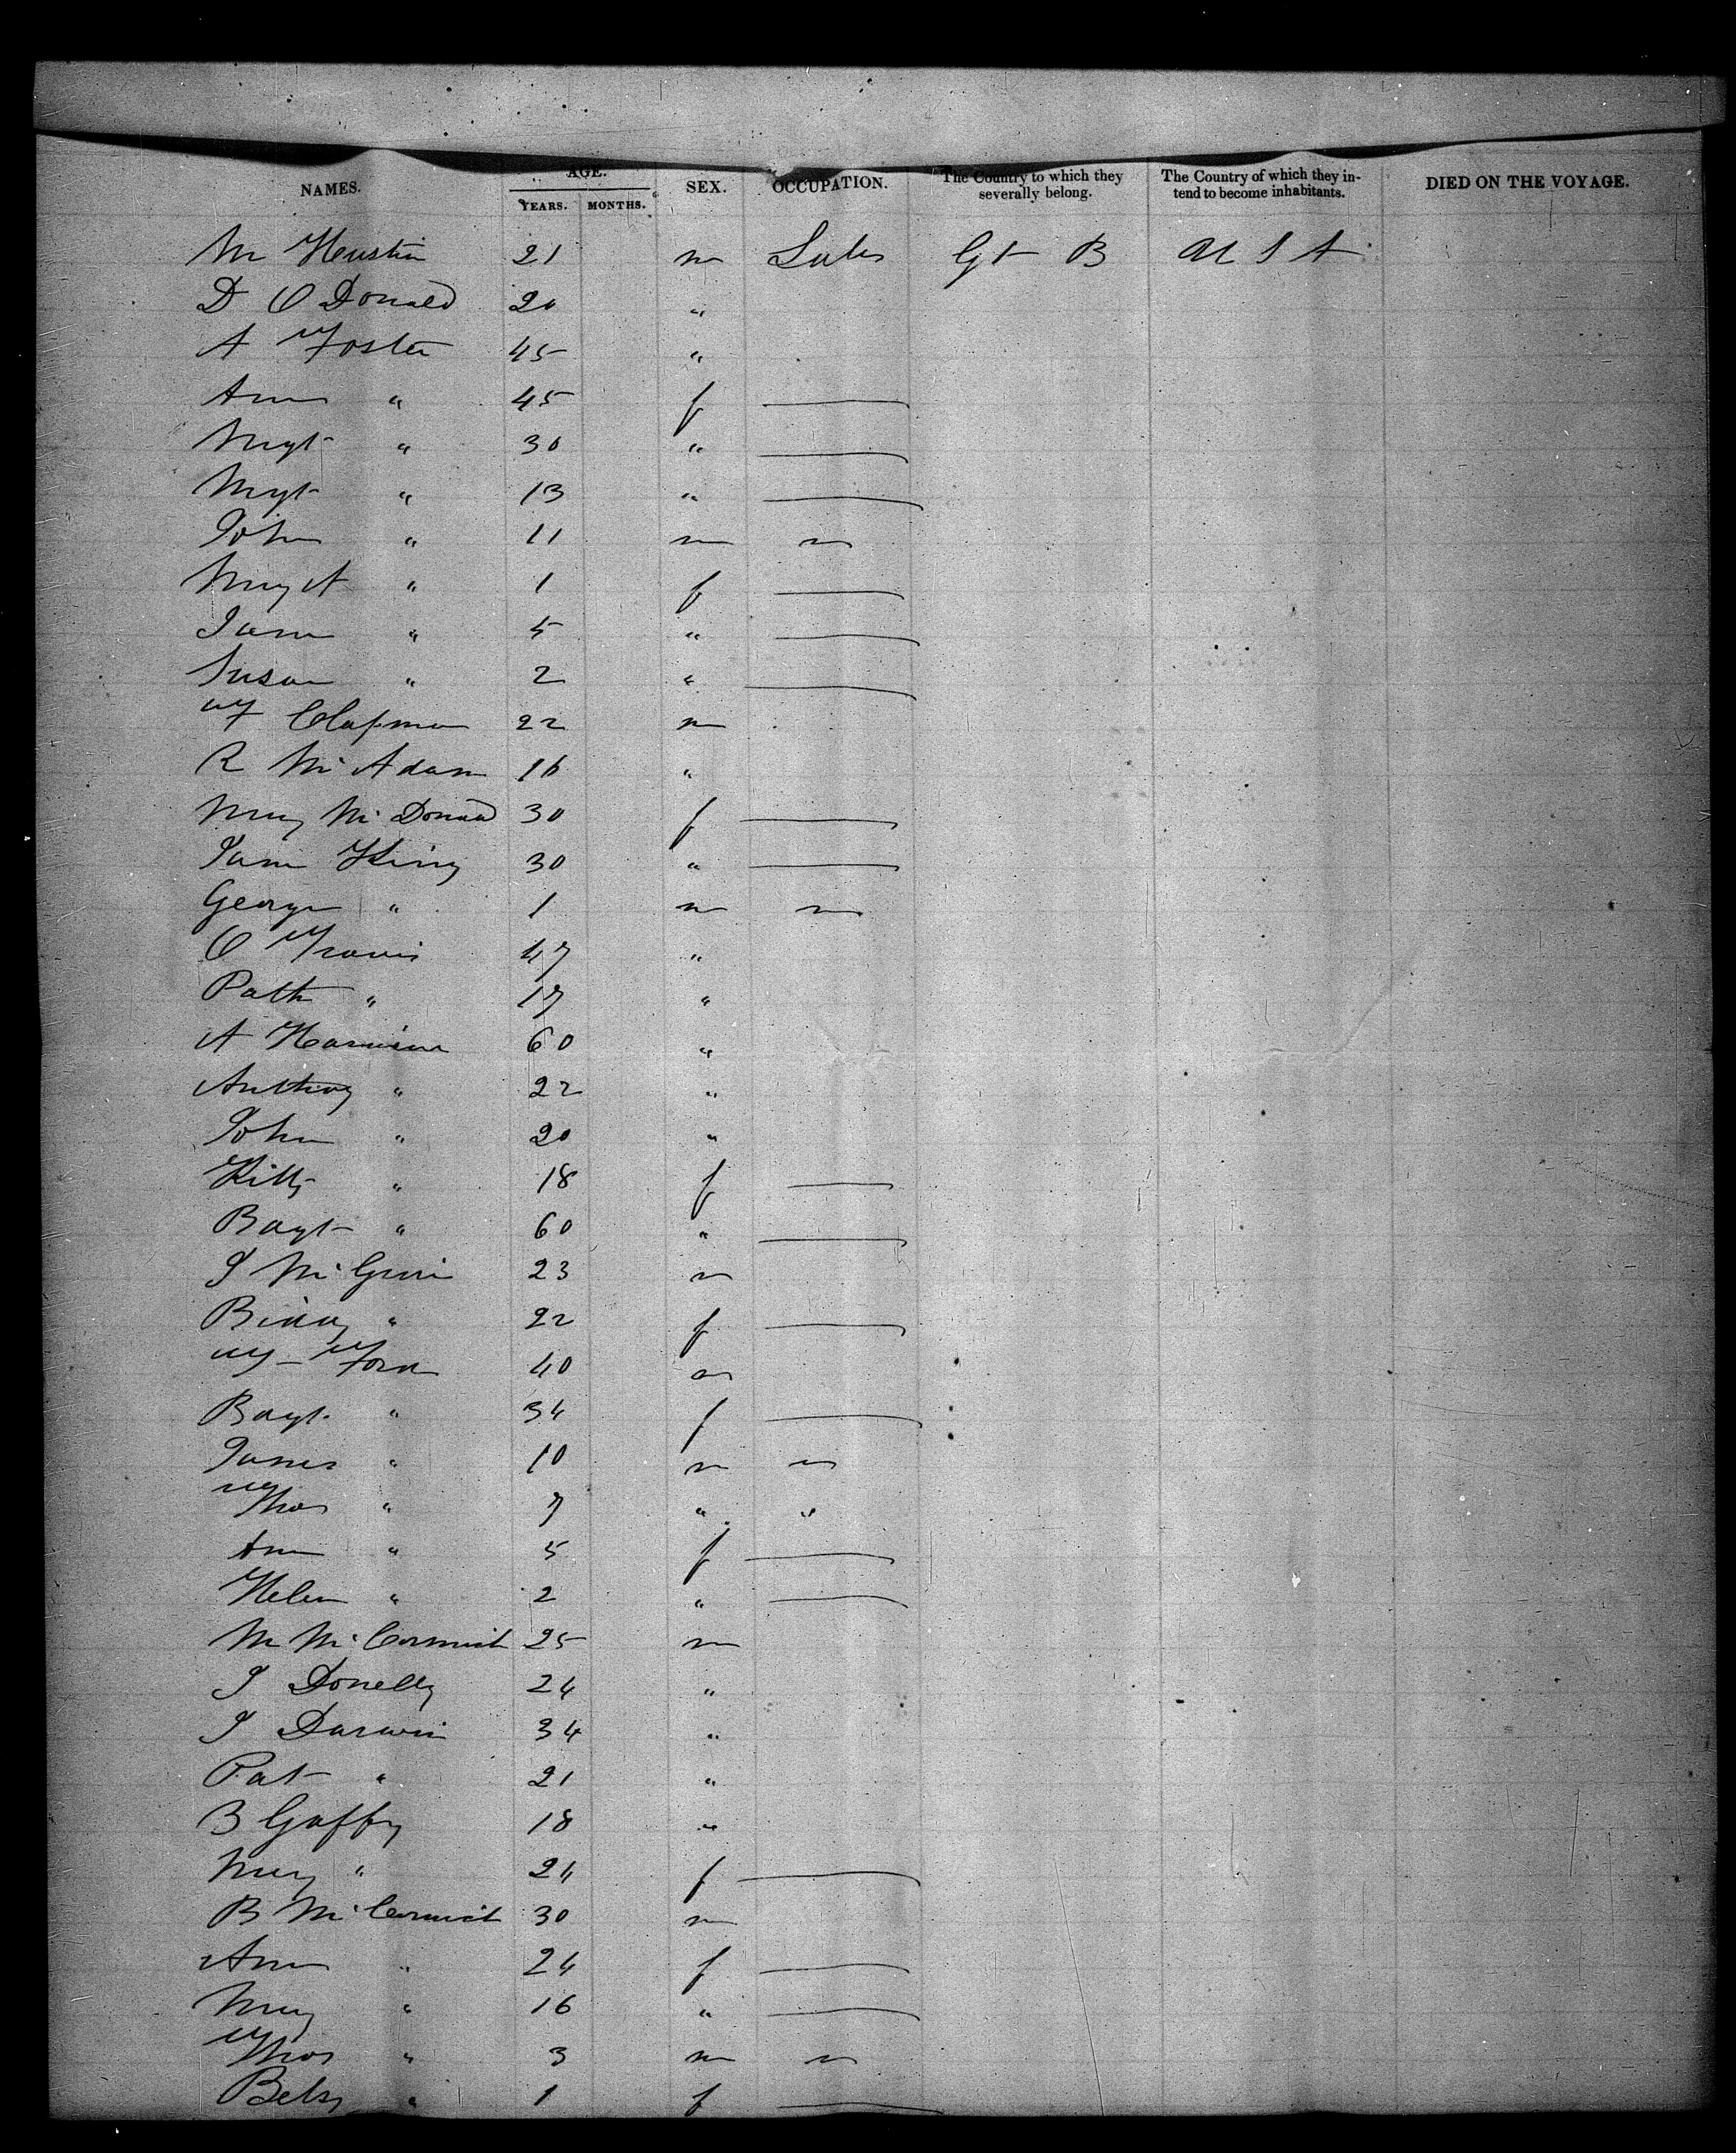 NAMES. AGE. YEARS. MONTHS. SEX. OCCUPATION. The Country to which they severally belong. The Country of which they intend to become inhabitants. DIED ON THE VOYAGE.
M 21 m Gt B U S A
D O Donald 20 "
A Foster 45 "
Ann " 45 f
Mgt " 30 "
Mgt " 13 "
John " 11 m
Mary A " 1 f
Jane " 5 "
Susan " 2 "
T Clapman 22 m
R Mc Adam 16 "
Mary Mc Donald 30 f
Jane King 30 "
George " 1 m
O Travis 47 "
Patk " 17 "
A Harrison 60 "
Anthony " 22 "
John " 20 "
Kitty " 18 f
Bagt " 60 "
J Mc 23 m
Biddy " 22 f
T Ford 40 m
Bagt " 34 f
James " 10 m
Thos " 7 " "
Ann " 5 f
Helen " 2 "
M Mc Cormick 25 m
J Donelly 24 "
J Darwin 34 "
Pat " 21 "
B Gaffy 18 "
Mary " 24 f
B Mc Cormick 30 m
Ann " 24 f
Mary " 16 "
Thos " 3 m
Betsy " 1 f